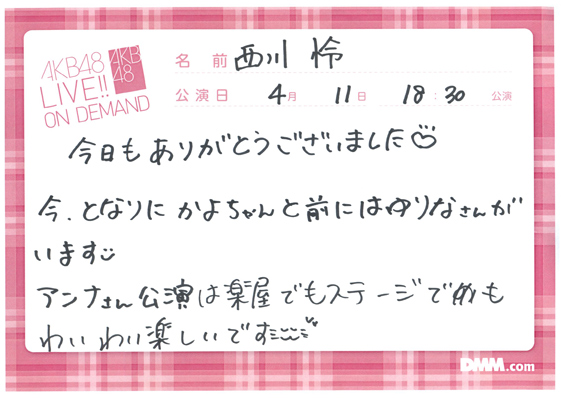 AKB48
LIVE!!
ON DEMAND
AKB
48
名前 西川 怜
公演日 4月 11日 18:30 公演
今日もありがとうございました
今、となりにかよちゃんと前にはゆりなさんが
います
アンナさん公演は楽屋でもステージでめも
わいわい楽しいです
DMM.com